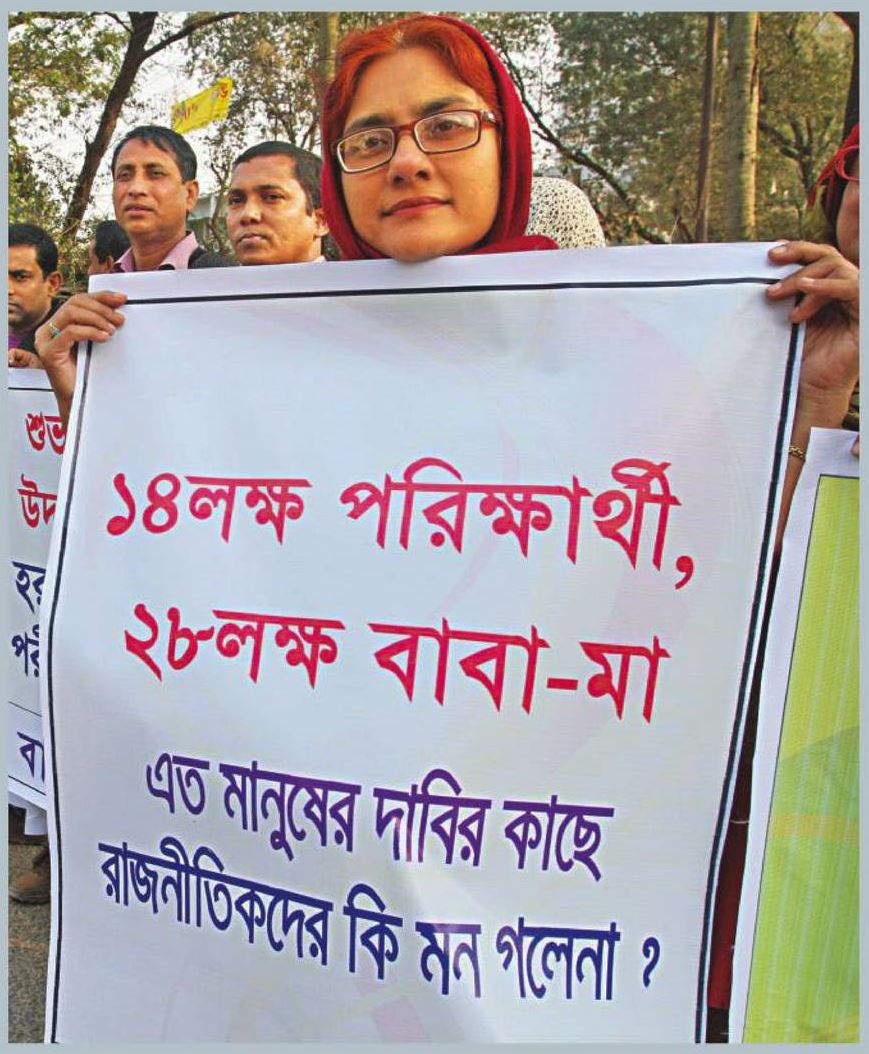 ১৪লক্ষ পরিক্ষার্থী,
২৮লক্ষ বাবা-মা
এত মানুষের দাবির কাছে
রাজনীতিকদের কি মন গলেনা ?